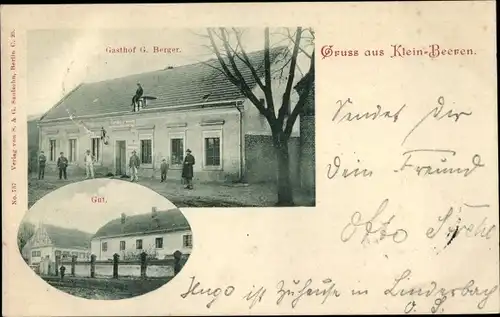 Gasthof G. Berger.
Gruss aus Klein-Beeren.
Gut.
No. 757 Verlag von S. & G. Saulsohn, Berlin C. 25.
Sendet Dir
Dein Freund
Otto
Hugo ist Zuhause in Linderbach